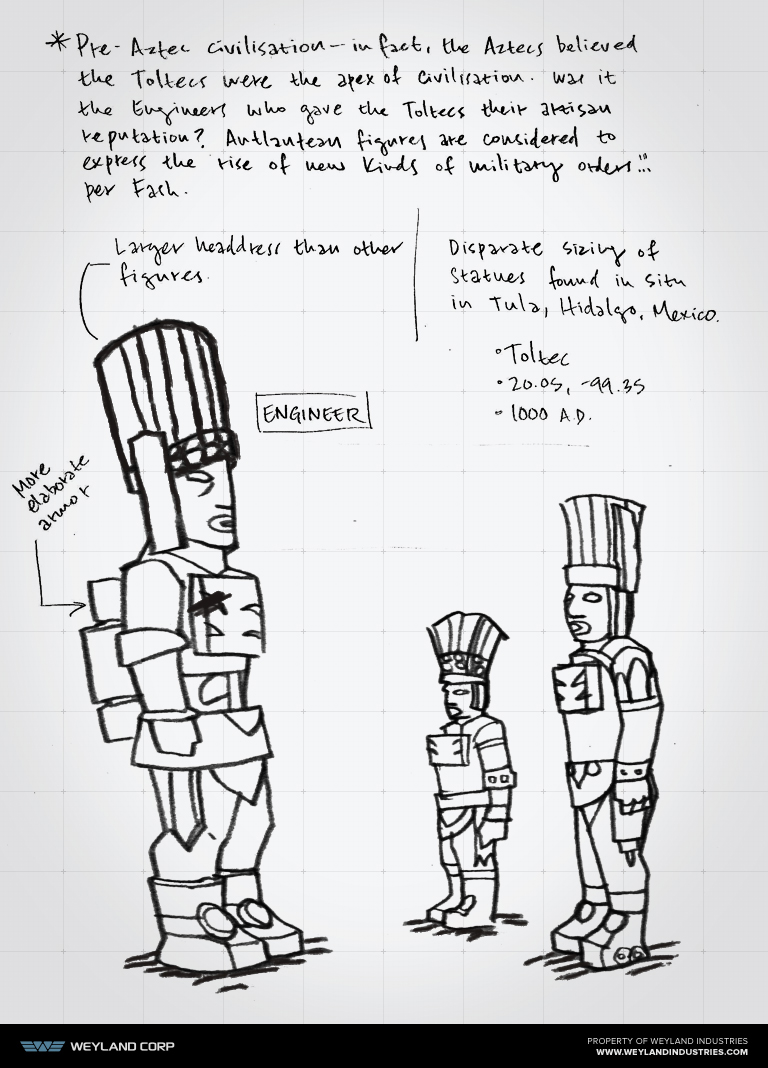 * Pre-Aztec civilisation - in fact, the Aztecs believed
the Toltecs were the apex of civilisation. Was it
the Engineers who gave the Toltecs their artisan
reputation? Autlantean figures are considered to
express the rise of new kinds of military orders!!!
per Fash.
Larger headdress than other
figures.
Disparate sizing of
statues found in situ
in Tula, Hidalgo, Mexico.
• Toltec
• 20.05, -99.35
• 1000 A.D.
ENGINEER
More
elaborate
armor
WEYLAND CORP
PROPERTY OF WEYLAND INDUSTRIES
WWW.WEYLANDINDUSTRIES.COM